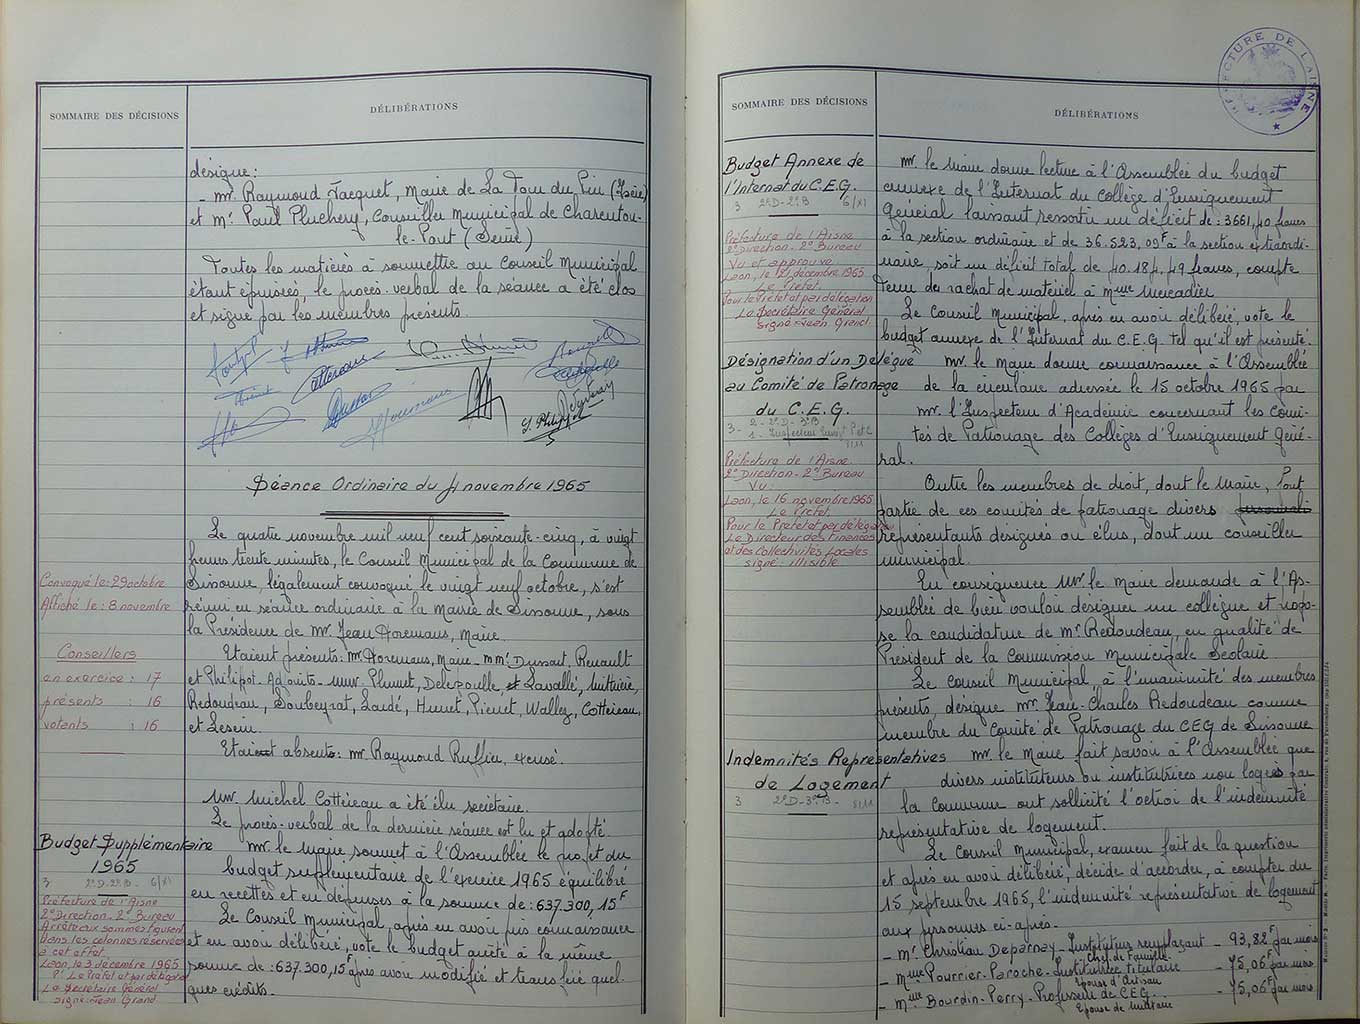 SOMMAIRE DES DÉCISIONS
DÉLIBÉRATIONS
désigne :
- Mr. Raymond Jacquet, Maire de La Tour du Pin (Isère)
et Mr. Paul Pluchery, Conseiller Municipal de Charenton-
le-Pont (Seine)
Toutes les matières à soumettre au Conseil Municipal
étant épuisées, le procès-verbal de la séance a été clos
et signé par les membres présents.
Séance Ordinaire du 4 novembre 1965
Le quatre novembre mil neuf cent soixante-cinq, à vingt
heures trente minutes, le Conseil Municipal de la Commune de
Sissonne, légalement convoqué le vingt neuf octobre, s'est
réuni en séance ordinaire à la Mairie de Sissonne, sous
la Présidence de Mr. Jean Horemans, Maire.
Convoqué le : 29 octobre
Affiché le : 8 novembre
Conseillers
en exercice : 17
présents : 16
votants : 16
Etaient présents : Mr Horemans, Maire - MM. Dussart, Renault
et Philipot - Adjoints - MM. Plumet, Delépoulle, et Lavallé, Mitrière,
Redoudeau, Soubeyrat, Laudé, Humet, Picuet, Wallez, Cottereau,
et Leseur.
Etaient absents : Mr Raymond Ruffier, excusé.
Mr. Michel Cottereau a été élu secrétaire.
Le procès-verbal de la dernière séance est lu et adopté.
Budget Supplémentaire
1965
3 2°D-2°B - 6/XI
Préfecture de l'Aisne
2°Direction - 2° Bureau
Arrêté aux sommes figurant
dans les colonnes réservées
à cet effet.
Laon, le 3 décembre 1965
P/ Le Préfet et par délégation
Le Secrétaire Général
signé : Jean Grand
Mr. le Maire soumet à l'Assemblée le projet du
budget supplémentaire de l'exercice 1965 équilibré
en recettes et en dépenses à la somme de : 637.300,15F
Le Conseil Municipal, après en avoir pris connaissance
et en avoir délibéré, vote le budget arrêté à la même
somme de : 637.300,15F après avoir modifié et transféré quel-
ques crédits.
PRÉFECTURE DE L'AISNE
SOMMAIRE DES DÉCISIONS
DÉLIBÉRATIONS
Budget Annexe de
l'Internat du C.E.G.
3 2°D-2°B 6/XI
Préfecture de l'Aisne
2°Direction - 2° Bureau
Vu et approuvé
Laon, le 21 décembre 1965
Le Préfet.
Pour le Préfet et par délégation
Le Secrétaire Général
signé : Jean Grand.
Mr. le Maire donne lecture à l'Assemblée du budget
annexe de l'Internat du Collège d'Enseignement
Général laissant ressortir un déficit de : 3661,40 francs
à la section ordinaire et de 36.523,09F à la section extraordi-
naire, soit un déficit total de 40.184,49 francs, compte
tenu du rachat de matériel à Mme Mercadier
Le Conseil Municipal, après en avoir délibéré, vote le
budget annexe de l'Internat du C.E.G. tel qu'il est présenté.
Désignation d'un Délégué
au Comité de Patronage
du C.E.G.
3 - 2 - 2°D - 3°B
Préfecture de l'Aisne.
2°Direction - 2° Bureau
Vu :
Laon, le 16 novembre 1965
Le Préfet.
Pour le Préfet et par délégation
Le Directeur des Finances
et des Collectivités Locales
signé : illisible
Mr. le Maire donne connaissance à l'Assemblée
de la circulaire adressée le 15 octobre 1965 par
Mr. l'Inspecteur d'Académie concernant les Comi-
tés de Patronage des Collèges d'Enseignement Géné-
ral.
Outre les membres de droit, dont le Maire, font
partie de ces comités de patronage divers
représentants désignés ou élus, dont un conseiller
municipal.
En conséquence Mr. le Maire demande à l'As-
semblée de bien vouloir désigner un collègue et propo-
se la candidature de Mr Redoudeau, en qualité de
Président de la Commission Municipale Scolaire
Le Conseil Municipal à l'unanimité des membres
présents, désigne Mr. Jean-Charles Redoudeau comme
membre du Comité de Patronage du CEG de Sissonne
Indemnités Représentatives
de Logement
3 2°D-3°B - 8/11
Mr. le Maire fait savoir à l'Assemblée que
divers instituteurs ou institutrices non logés par
la Commune ont sollicité l'octroi de l'indemnité
représentative de logement.
Le Conseil Municipal, examen fait de la question
et après en avoir délibéré, décide d'accorder, à compter du
15 septembre 1965, l'indemnité représentative de logement
aux personnes ci-après.
- Mr. Christian Deparnay - Instituteur remplaçant - 93,82F par mois
Chef de Famille
- Mme Pourrier-Paroche - Institutrice titulaire - 75,06F par mois
Epouse d'Artisan
- Mme Bourdin-Perry - Professeur de CEG - 75,06F par mois
Epouse de Militaire